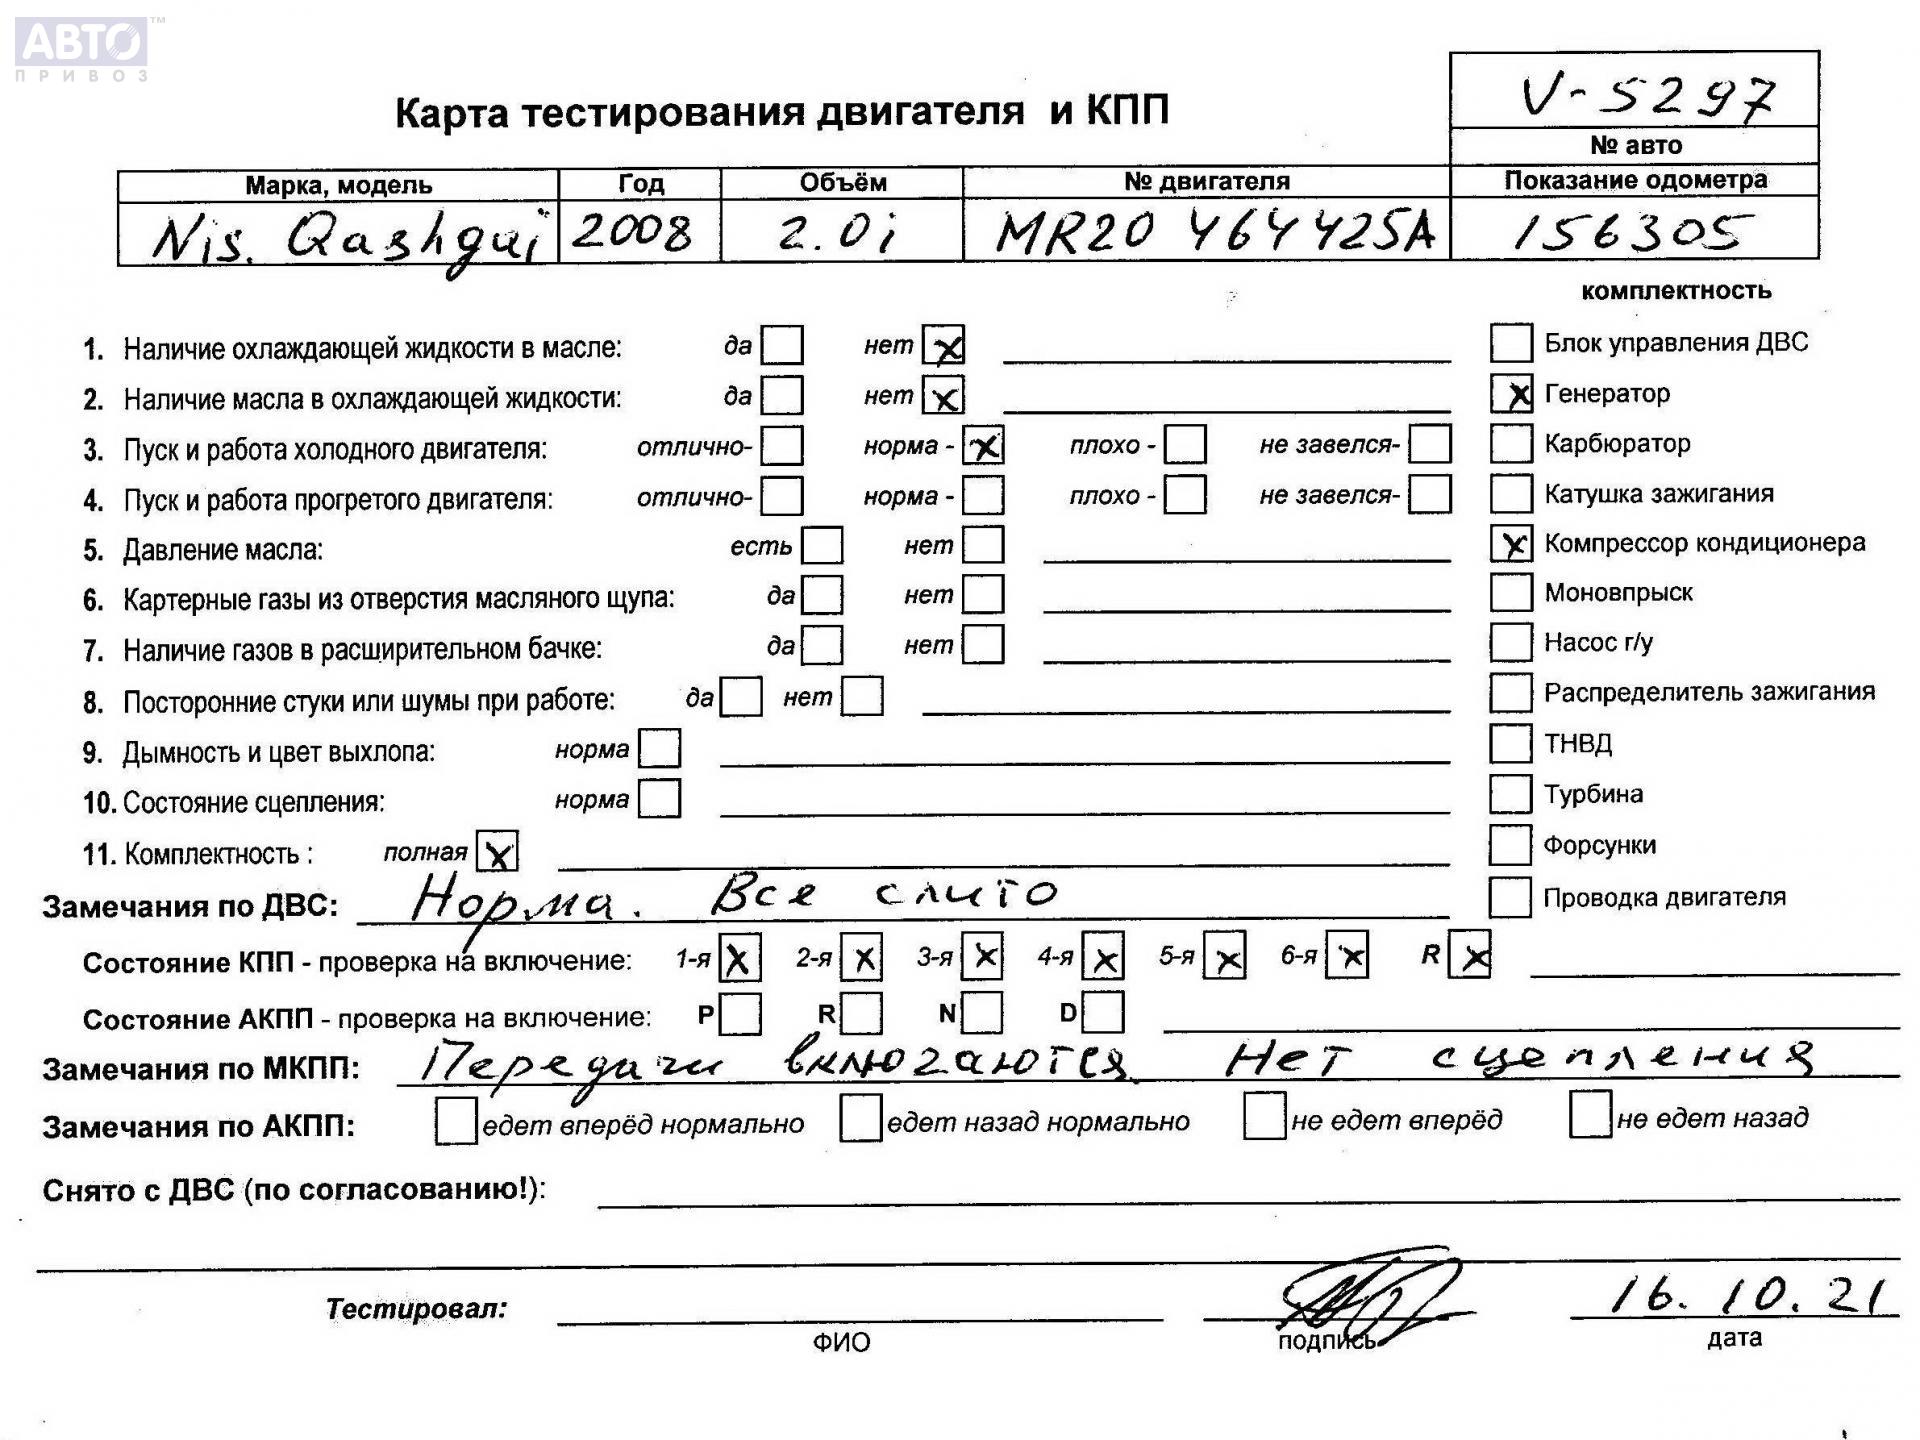 АВТО™
ПРИВОЗ
V-5297
Карта тестирования двигателя и КПП
№ авто
Марка, модель Год Объём № двигателя Показание одометра
Nis. Qashgai 2008 2.0i MR20 464425A 156305
комплектность
1. Наличие охлаждающей жидкости в масле: да нет x Блок управления ДВС
2. Наличие масла в охлаждающей жидкости: да нет x x Генератор
3. Пуск и работа холодного двигателя: отлично- норма - x плохо - не завелся- Карбюратор
4. Пуск и работа прогретого двигателя: отлично- норма - плохо - не завелся- Катушка зажигания
5. Давление масла: есть нет x Компрессор кондиционера
6. Картерные газы из отверстия масляного щупа: да нет Моновпрыск
7. Наличие газов в расширительном бачке: да нет Насос г/у
8. Посторонние стуки или шумы при работе: да нет Распределитель зажигания
9. Дымность и цвет выхлопа: норма ТНВД
10. Состояние сцепления: норма Турбина
11. Комплектность : полная x Форсунки
Замечания по ДВС: Норма. Все слито Проводка двигателя
Состояние КПП - проверка на включение: 1-я x 2-я x 3-я x 4-я x 5-я x 6-я x R x
Состояние АКПП - проверка на включение: P R N D
Замечания по МКПП: Передачи включаются. Нет сцепления
Замечания по АКПП: едет вперёд нормально едет назад нормально не едет вперёд не едет назад
Снято с ДВС (по согласованию!):
Тестировал: 16.10.21
ФИО подпись дата